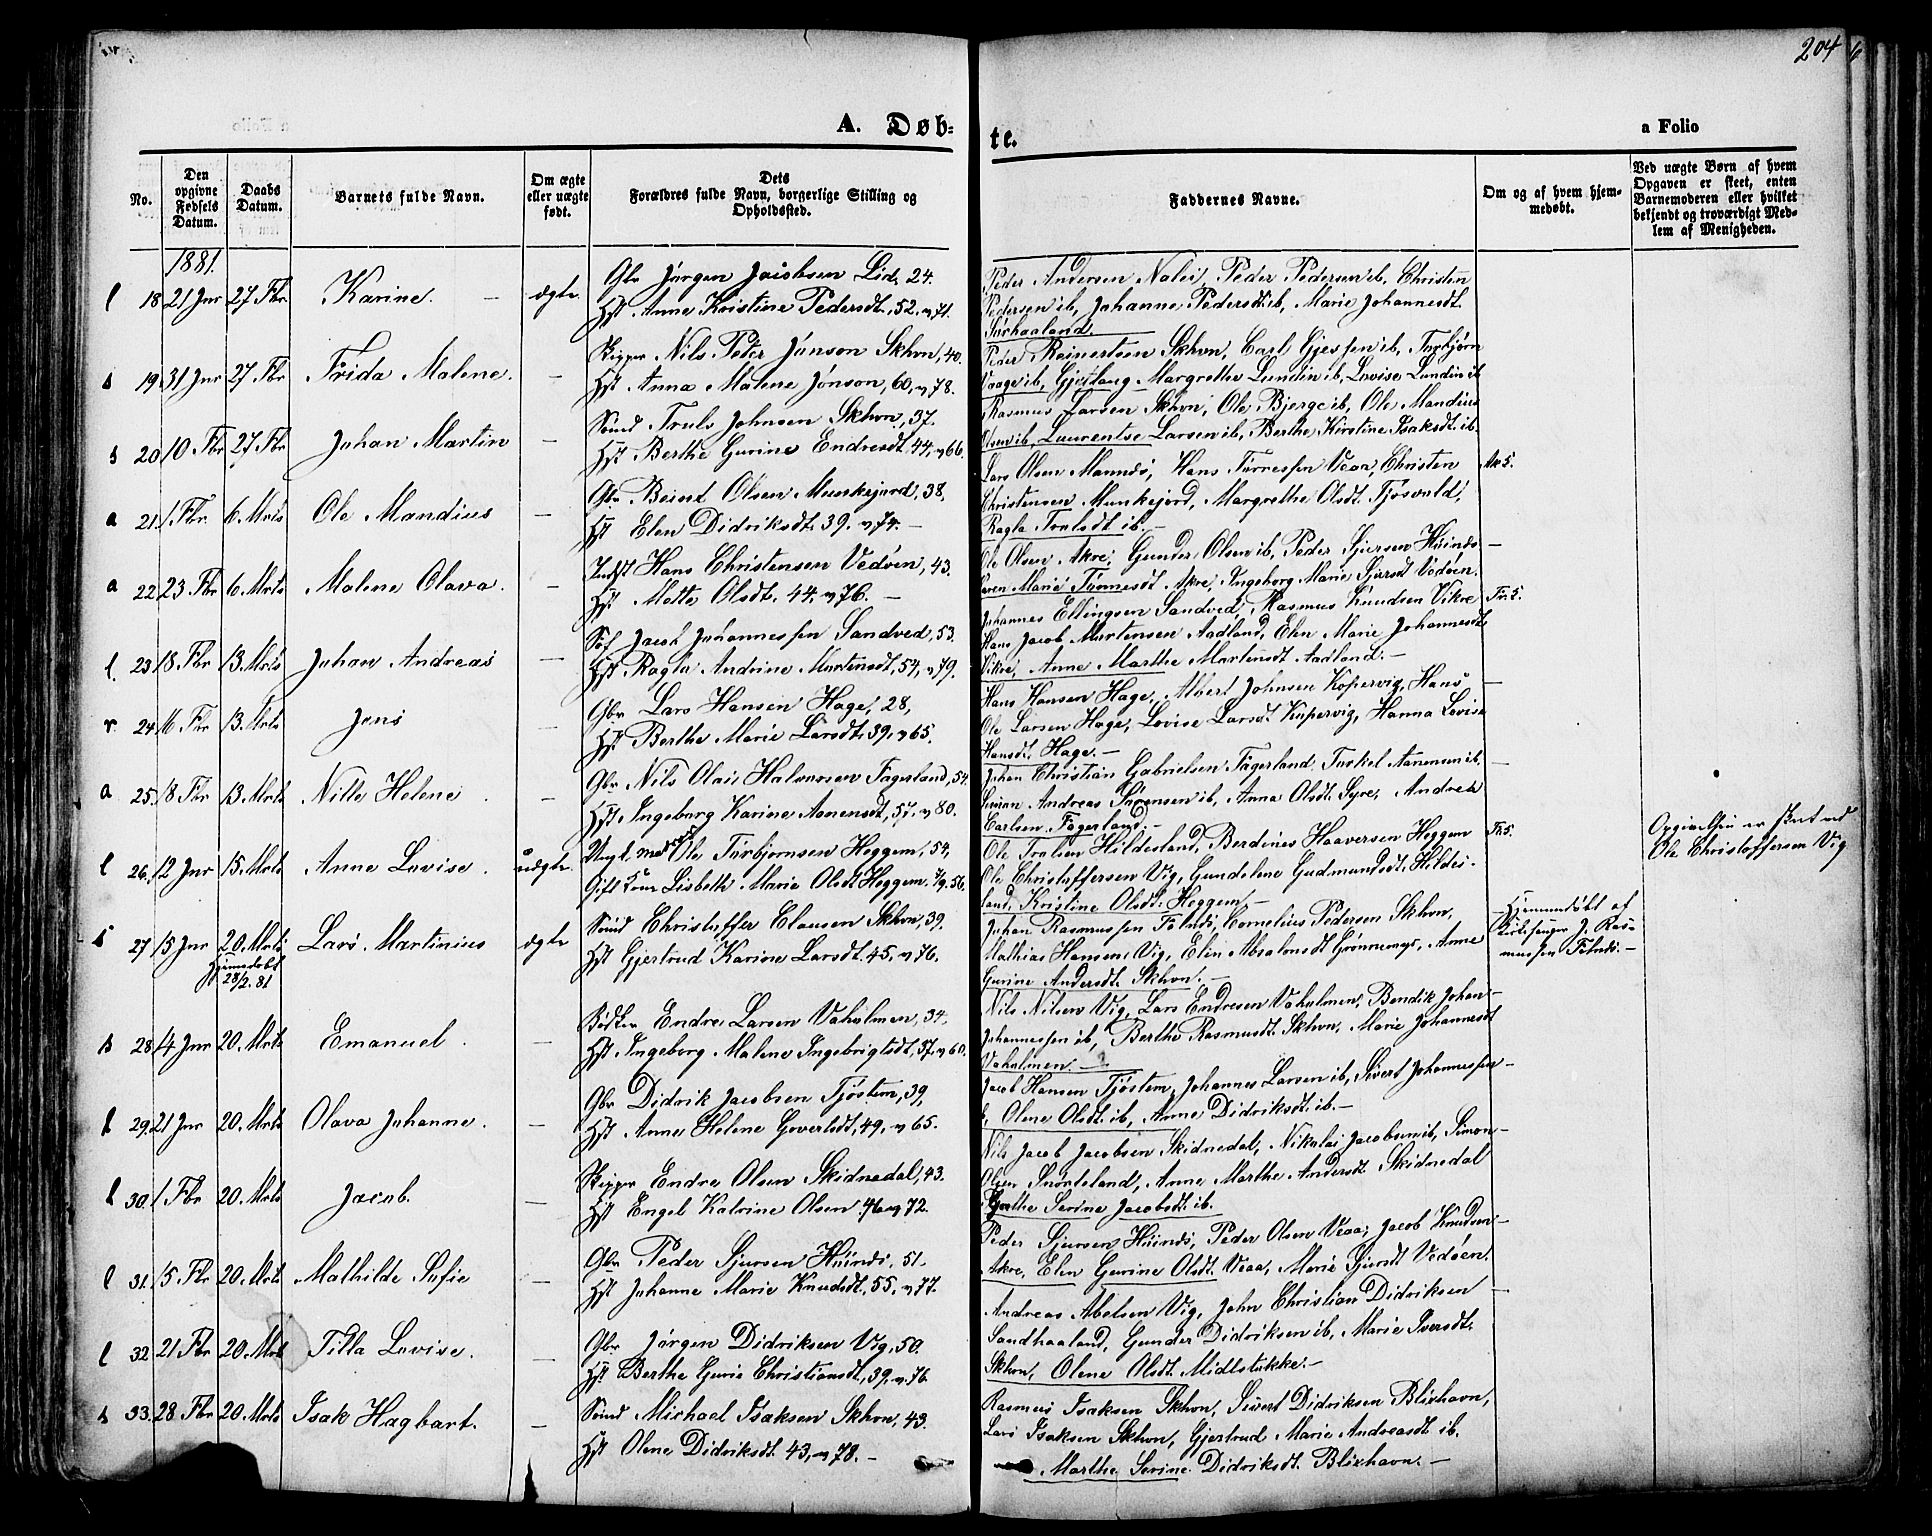 204
A. Døb-
te.
a Folio
No.
Den opgivne Fødsels Datum.
Daabs Datum.
Barnets fulde Navn.
Om ægte eller uægte født.
Dets Forældres fulde Navn, borgerlige Stilling og Opholdssted.
Faddernes Navne.
Om og af hvem hjemmedøbt.
Ved uægte Børn af hvem Opgaven er skeet, enten Barnemoderen eller hvilket bekjendt og troværdigt Medlem af Menigheden.
1881.
l 18 21 Jnr 27 Fbr Karine. ægte
Gbr Jørgen Jacobsen Lid, 24.
Hst Anne Kristine Pedersdt, 52. v 71.
Peder Andersen Nalei, Peder Pedersen ib, Christen
Pedersen ib, Johanne Pedersdt ib, Marie Johannesdt
Sørhaaland.
s 19 31 Jnr 27 Fbr Frida Malene. —
Skipper Nils Peter Jonson Skhvn, 40.
Hst Anna Malene Jonson, 60, v 78.
Peder Reinertsen Skhvn, Carl Gjessen ib, Torbjørn
Vaage ib, Gjertlaug Margrethe Lundin ib, Lovise Lundin ib
s 20 10 Fbr 27 Fbr Johan Martin —
Sømd Truls Johnsen Skhvn, 37.
Hst Berthe Gurine Endresdt 44, v 66.
Rasmus Larsen Skhvn, Ole Bjerge ib, Ole Mandius
Olsen ib, Laurentse Larsen ib, Berthe Kirstine Isaksdt ib.
a 21 1 Fbr 6. Mrts Ole Mandius —
Gbr Beint Olsen Munkejord, 38,
Hst Elen Didriksdt. 39. v 74. —
Lars Olsen Mannes, Hans Tørressen Veaa, Christen
Christensen Munkejord, Margrethe Olsdt Tjosvold,
Ragla Trulsdt ib. —
Ak 5.
a 22 23 Fbr 6. Mrts Malene Olava. —
Indst Hans Christensen Vedøen, 43.
Hst Mette Olsdt. 44. v 76. —
Ole Olsen Akre, Gunder Olsen ib, Peder Sjursen Hiinds-
Marie Tønnesdt Akre, Ingeborg Marie Sjursdt Vedøen.
l. 23 18 Fbr 13. Mrts Johan Andreas —
Søf Jacob Johannessen Sandved, 53.
Hst Ragla Andrine Mortensdt, 54, v 79.
Johannes Ellingsen Sandved, Rasmus Knudsen Vikre
Hans Jacob Mortensen Aadland, Elen Marie Johannesdt
Vikre, Anne Marthe Mortensdt Aadland. —
Fr. 5.
r 24 16 Fbr 13. Mrts Jens —
Gbr Lars Hansen Hage, 28,
Hst Berthe Marie Larsdt. 39. v 65.
Hans Hansen Hage, Albert Johnsen Kopervig, Hans
Ole Larsen Hage, Lovise Larsdt Kopervig, Hanna Lovise
Hansdt. Hage. —
a 25 18 Fbr 13. Mrts Nille Helene . —
Gbr Nils Olai Halvorsen Fagerland, 54
Hst Ingeborg Karine Aanensdt, 57. v 80.
Johan Christian Gabrielsen Fagerland, Torkel Aanensen ib,
Simon Andreas Sørensen ib, Anna Olsdt Syre, Andrea
Carlsen Fagerland. —
l 26 12 Jnr 15. Mrts Anne Lovise . uægte
Ungk. Ole Torbjørnsen Heggem, 54,
Gift Kone Lisbeth Marie Olsdt Heggem. 56.
Ole Trulsen Hildesland, Berdines Haaversen Heggem
Ole Christoffersen Vig, Gundelene Gudmundsdt Hildes-
land, Kristine Olsdt. Heggem. —
Fr 5.
Opgivelsen er skeet ved
Ole Christoffersen Vig
s 27 15 Jnr 20. Mrts Lars Martinius ægte
Hjemmedøbt
28/2. 81
Sømd Christoffer Clausen Skhvn, 39.
Hst Gjertrud Karine Larsdt. 45, v 76.
Johan Rasmussen Falnæs, Cornelius Pedersen Skhvn,
Mathias Hansen Vig, Elin Absalonsdt Grønnemyr, Anne
Gurine Andersdt Skhvn. —
Hjemmedøbt af
Kirkesanger J. Ras-
mussen Falnæs. —
s 28 14 Jnr 20. Mrts Emanuel . —
Bødker Endre Larsen Vaholmen, 34,
Hst Ingeborg Malene Ingebrigtsdt, 37, v 60.
Nils Nilsen Vig, Lars Endresen Vaholmen, Bendik Johan
Johannessen ib, Berthe Rasmusdt Skhvn, Marie Johannesdt
Vaholmen —
l 29 21 Jnr 20. Mrts Olava Johanne . —
Gbr Didrik Jacobsen Tjøstem, 39,
Hst Anne Helene Govertsdt, 49, v 65.
Jacob Hansen Tjøstem, Johannes Larsen ib, Sivert Johannessen
ib, Olene Olsdt ib, Anne Didriksdt. ib. —
l 30. 1 Fbr 20. Mrts Jacob. —
Skipper Endre Olsen Skidnedal, 43.
Hst Engel Katrine Olsen 46 v 72.
Nils Jacob Jacobsen Skidnedal, Nikolai Jacobsen ib, Simon
Olsen Snørteland, Anne Marthe Andersdt Skidnedal
Berthe Serine Jacobsdt ib.
l 31. 15 Fbr 20. Mrts Mathilde Sofie —
Gbr Peder Sjursen Hiindø, 51.
Hst Johanne Marie Knudsdt, 55, v 77.
Peder Sjursen Hiindø, Peder Olsen Veaa, Jacob Knudsen
Akre, Elen Gurine Olsdt. Veaa, Marie Sjursdt Vedøen.
l 32 21 Fbr 20. Mrts Tilla Lovise. —
Gbr Jørgen Didriksen Vig, 50.
Hst Berthe Gurie Christiansdt, 39, v 76
Andreas Abelsen Vig, John Christian Didriksen
Sandhaaland, Gunder Didriksen ib, Marie Iversdt.
Skhvn, Olene Olsdt Midtstokke. —
s 33. 28 Fbr 20. Mrts Isak Hagbart. —
Sømd Michael Isaksen Skhvn, 43.
Hst Olene Didriksdt. 43, v 78. —
Rasmus Isaksen Skhvn, Sivert Didriksen Blixhavn,
Lars Isaksen Skhvn, Gjertrud Marie Andreasdt ib.
Marthe Serine Didriksdt. Blixhavn. —